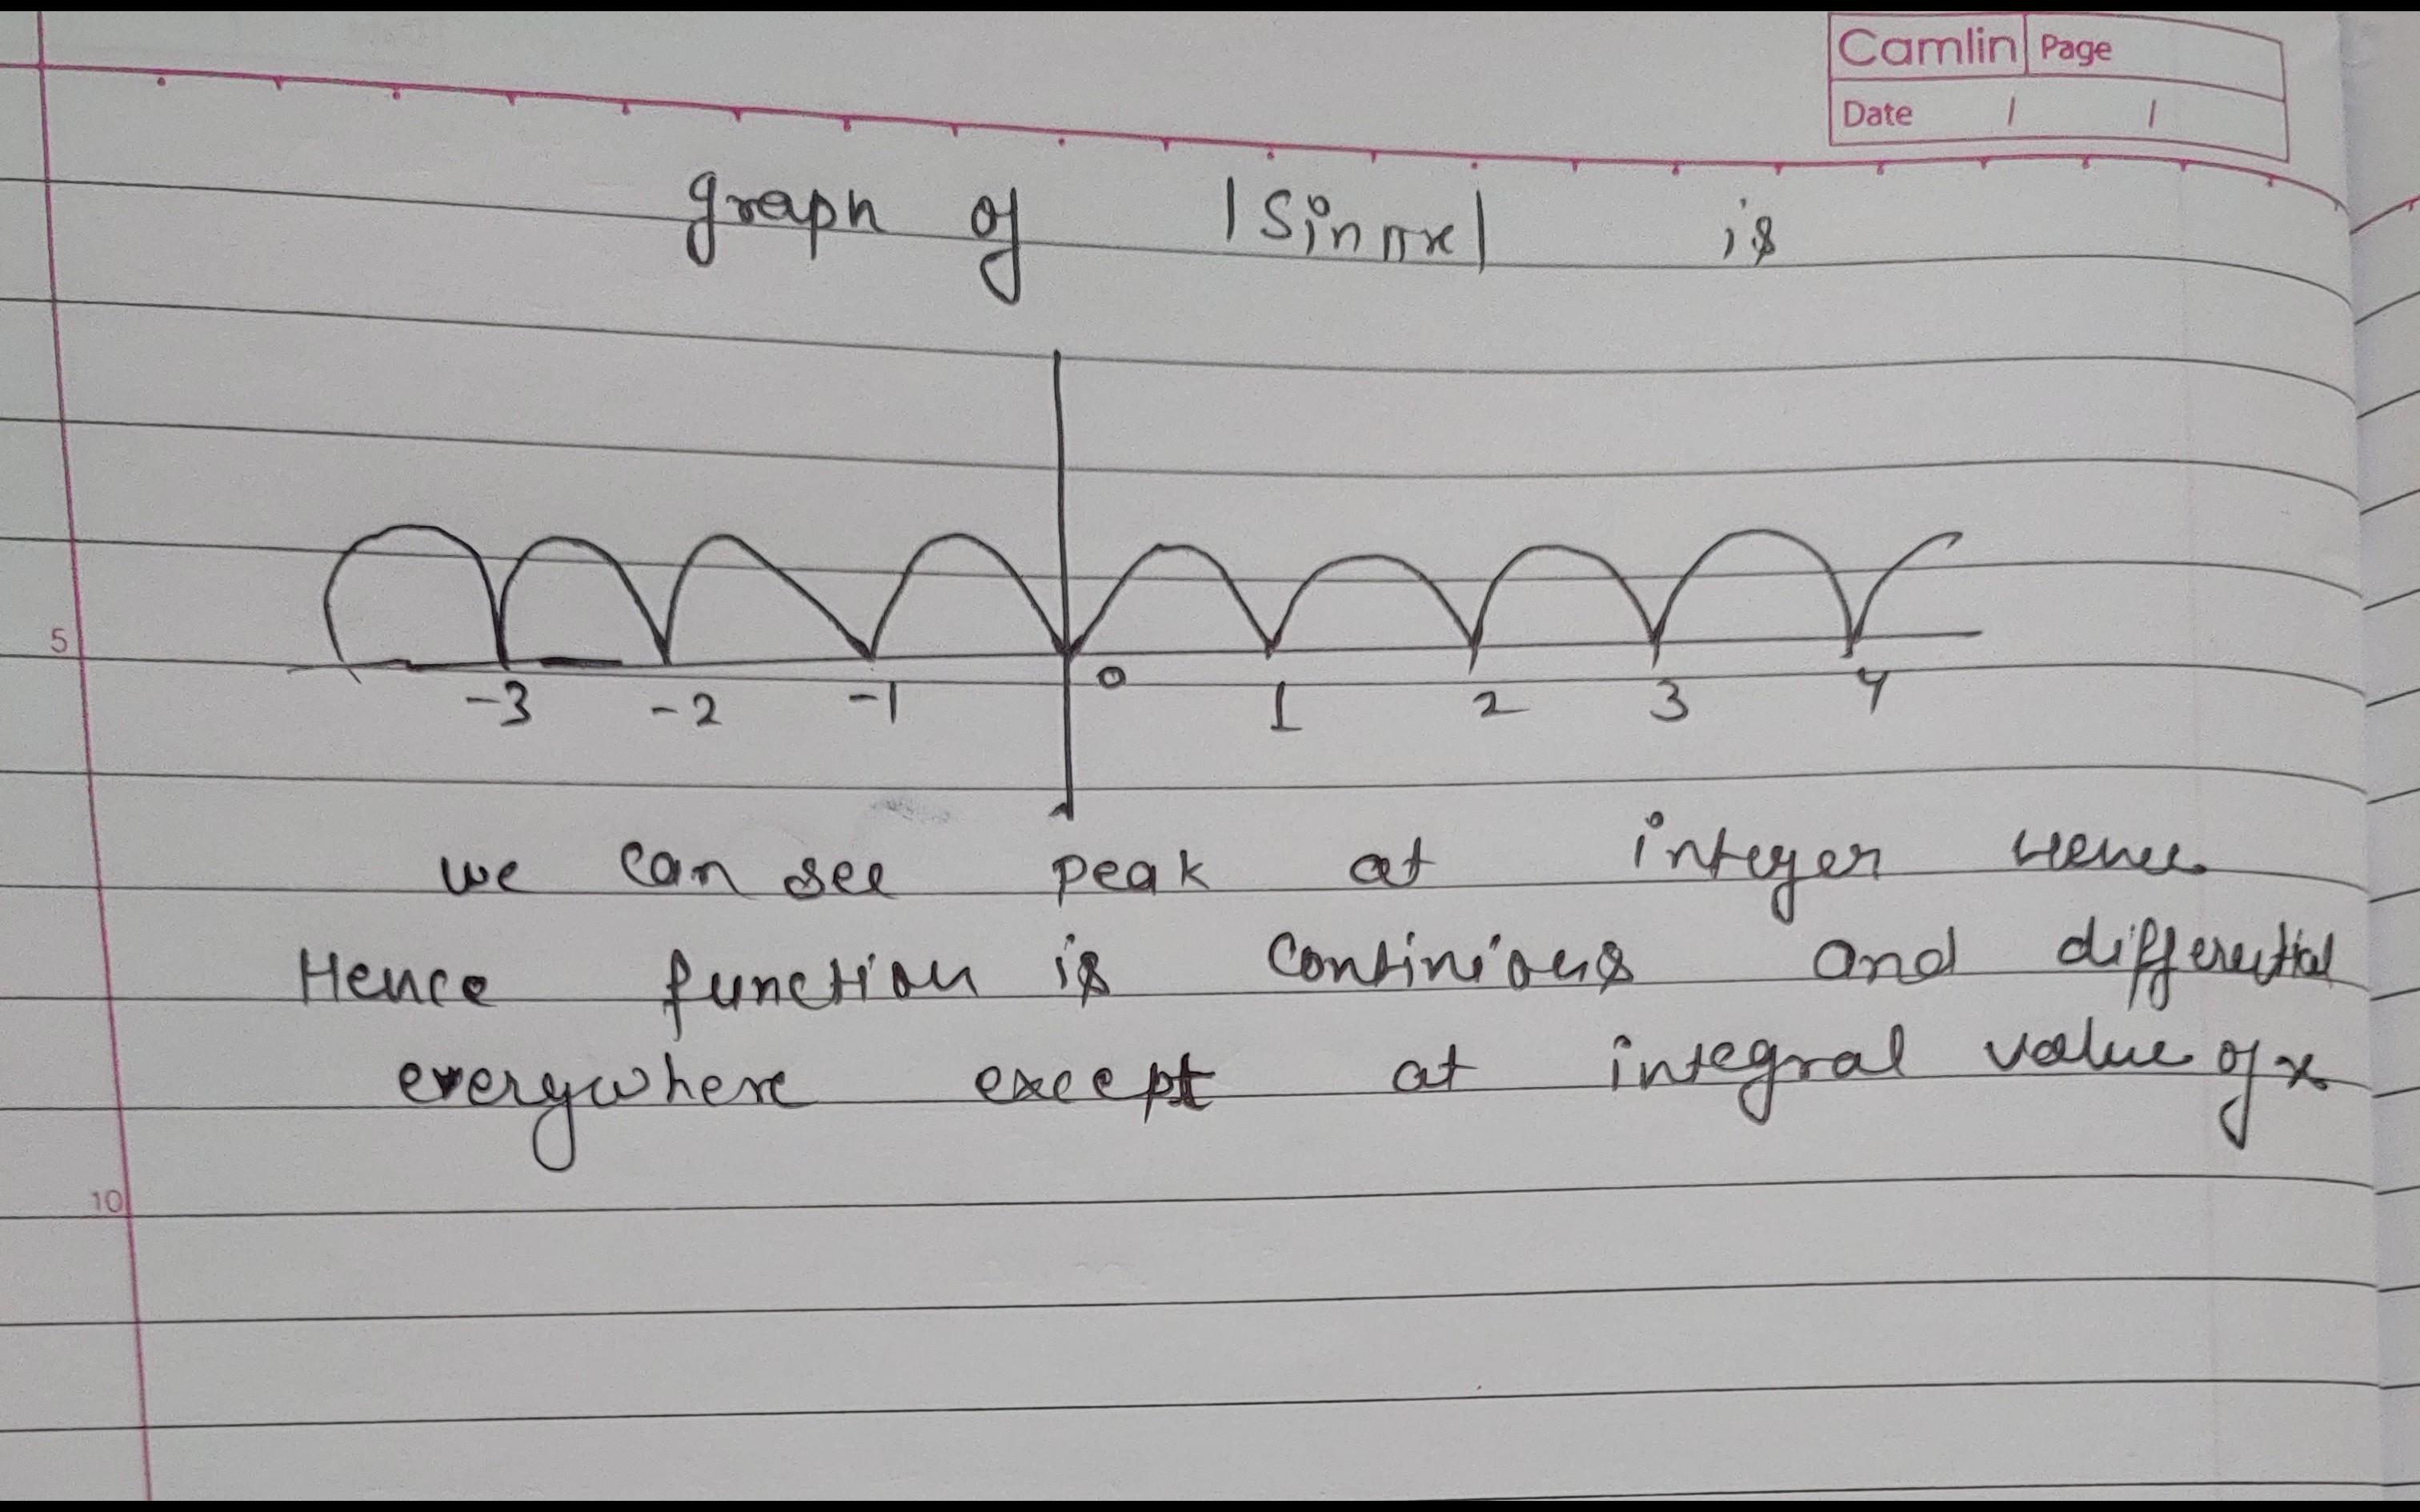 Camlin Page
Date / /
graph of |Sin πx| is
5
-3 -2 -1 0 1 2 3 4
we can see peak at integer
Hence function is continious and differential
everywhere except at integral value of x
10